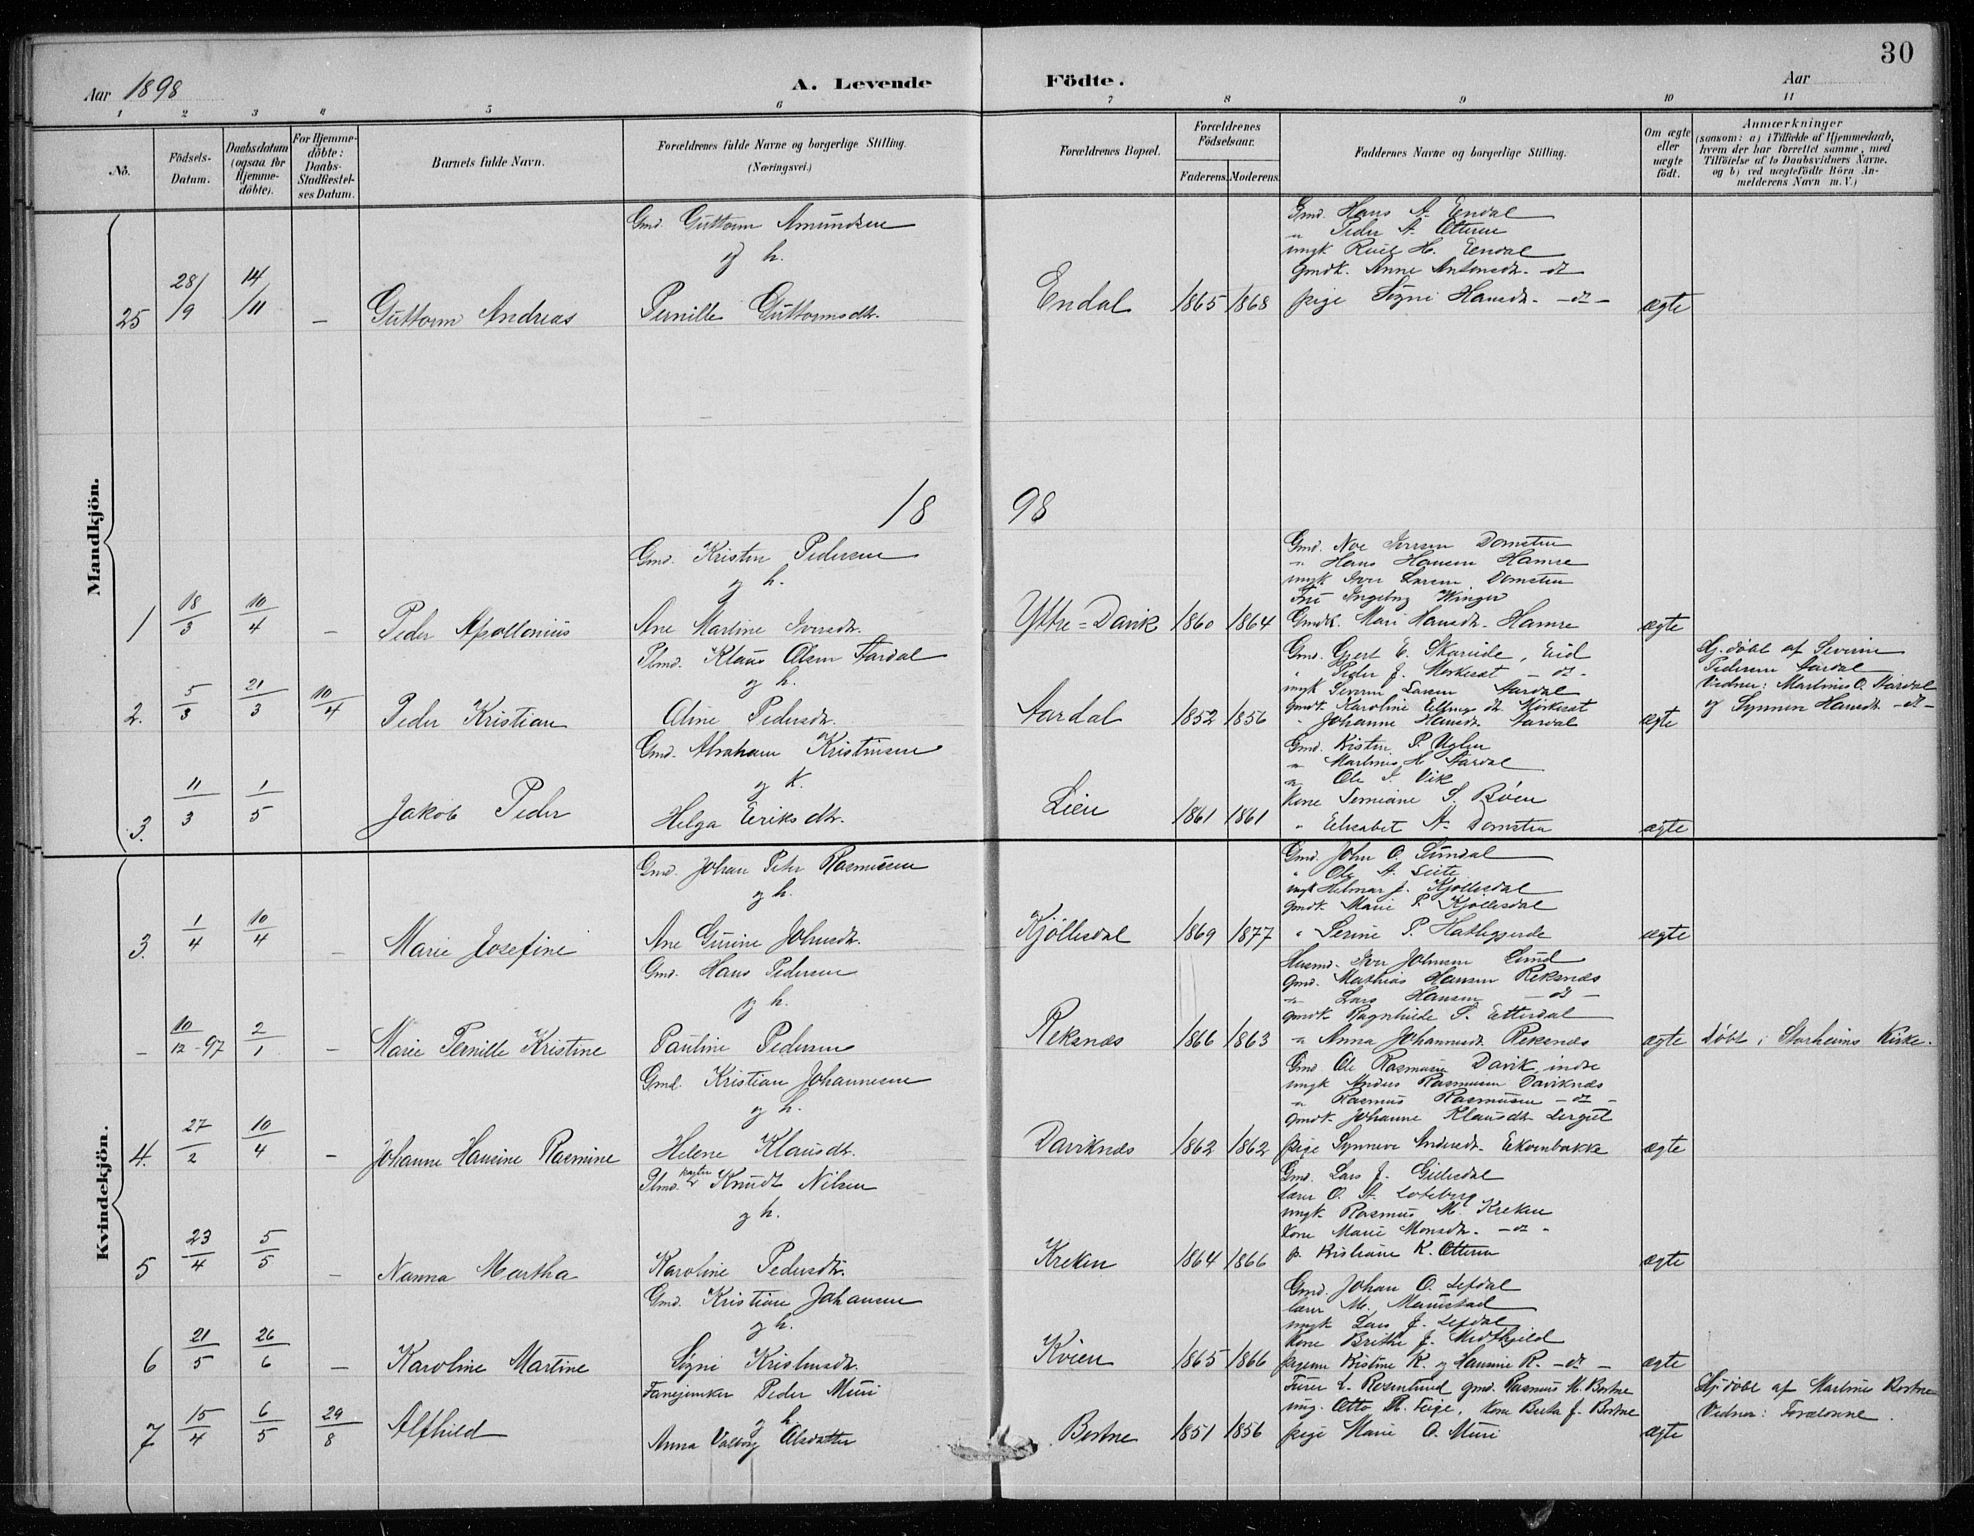 30
Aar 1898
A. Levende Födte.
Aar
1 2 3 4 5 6 7 8 9 10 11
No.
Födsels-Datum.
Daabsdatum (ogsaa for Hjemme-döbte).
For Hjemme-döbte: Daabs-Stadfæstel-ses Datum.
Barnets fulde Navn.
Forældrenes fulde Navne og borgerlige Stilling. (Næringsvei.)
Forældrenes Bopæl.
Forældrenes Födselsaar.
Faderens. Moderens.
Faddernes Navne og borgerlige Stilling.
Om ægte eller uægte födt.
Anmærkninger
(saasom: a) i Tilfælde af Hjemmedaab, hvem der har forrettet samme, med Tilföielse af to Daabsvidners Navne. og b) ved uægtefödte Börn An-melderens Navn m. V.)
Mandkjön.
Gmd. Guttorm Amundsen
og h.
25 28/9 14/11 – Guttorm Andreas Pernille Guttormsdtr. Endal 1865 1868
Gmd. Hans A. Endal
" Peder A. Otteren
ungk H. Endal
gmdk. Anne Antonsdt. – dt
pige Signi Hansdt. – dt – ægte
18 98
Gmd. Kristen Pedersen
og h.
1 18/3 10/4 – Peder Apollonius Ane Martine Iversdtr. Ytre-Davik 1860 1864
Gmd. Noe Iversen Domsten
" Hans Hansen Hamre
ungk Iver Larsen Domsten
Fru Ingeborg Winger
Gmdk. Mari Hansdt. Hamre ægte
Plmd. Klaus Olsen Aardal
og h.
2. 5/3 21/3 10/4 Peder Kristian Oline Pedersdtr. Aardal 1852 1856
Gmd. Gjert E. , Eid
" Peder J. – dt –
ungk Severin Larsen Aardal
gmdk. Karoline
" Johanne Hansdt. Aardal ægte
Hj. döbt af Severin
Pedersen Aardal
Vidner: Martinus O. Aardal
og Synneve Hansdt – dt –
Gmd. Abraham Kristensen
og k.
3. 11/3 1/5 Jakob Peder Helga Eriksdtr. Lien 1861 1861
Gmd. Kisten P.
" Martinus H. Aardal
" Ole I. Vik
Kone S. Böen
" Elisabet A. Domsten ægte
Kvindekjön.
Gmd. Johan Peter Rasmussen
og h.
3. 1/4 10/4 – Marie Josefine Ane Gurine Johnsdtr. Kjöllesdal 1869 1877
Gmd. John O. Sundal
" Ole A. Leite
ungk Helmar J. Kjöllesdal
gmdk. Marie P. Kjöllesdal
" Serine P. ægte
Gmd. Hans Pedersen
og h.
– 10/12-97 2/1 – Marie Pernille Kristine Pauline Pedersen Reksnes 1866 1863
Husmd. Iver Johnsen Lund
gmd. Mathias Hansen Reksnes
" Lars Hansen – dt –
gmdk Ragnhilde S.
" Anna Johannesdt. Reksnes ægte Döbt i Starheims Kirke.
Gmd. Kristian Johannesen
og h.
4. 27/2 10/4 – Johanne Hansine Rasmine Helene Klausdtr. Daviknes 1862 1862
Gmd Ole Rasmusen Davik, indre
ungk Anders Rasmusen Daviknes
" Rasmus Rasmusen – dt –
gmdk. Johanne Klausdt.
pige Synneve Andersdt. Ekornbakke ægte
Plmd. Knudt Nilsen
og h.
5 23/4 5/5 – Nanna Martha Karoline Pedersdtr. Kreken 1864 1866
Gmd. Lars J. Gillesdal
lærer O. A. Loteberg
ungk. Rasmus M. Kreken
Kone Marie Monsdt. – dt –
p. Kristiane K. Otteren ægte
Gmd. Kristian Johansen
og h.
6 21/5 26/6 – Karoline Martine Signi Kristensdtr. Kvien 1865 1866
Gmd. Johan O. Lefdal
lærer M. Maurstad
ungk Lars J. Lefdal
Kone Brithe J.
pigerne Kristine K. og Hansine R. – dt – ægte
Fanejunker Peder Muri
og h.
7 15/4 6/5 29/8 Alfhild Anna Valborg Olsdatter Bortne 1851 1856
Furer L. Rosenlund, gmd. Rasmus M. Bortne
ung. Otto R. , Kone Berta J. Bortne
pige Marie O. Muri ægte
Hj. döbt af Martinus Bortne
Vidner: Forældrene.